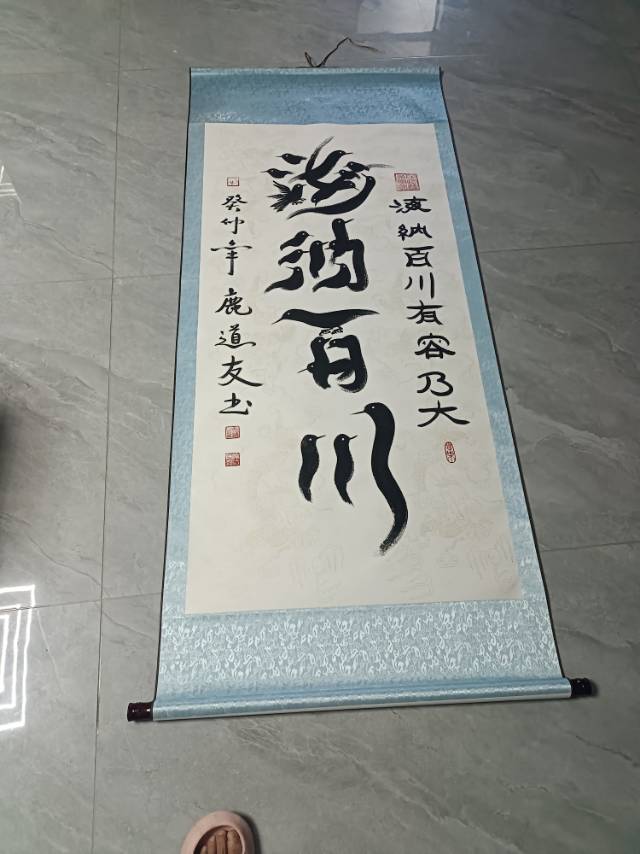 海纳百川有容乃大
海纳百川
癸卯年鹿道友书